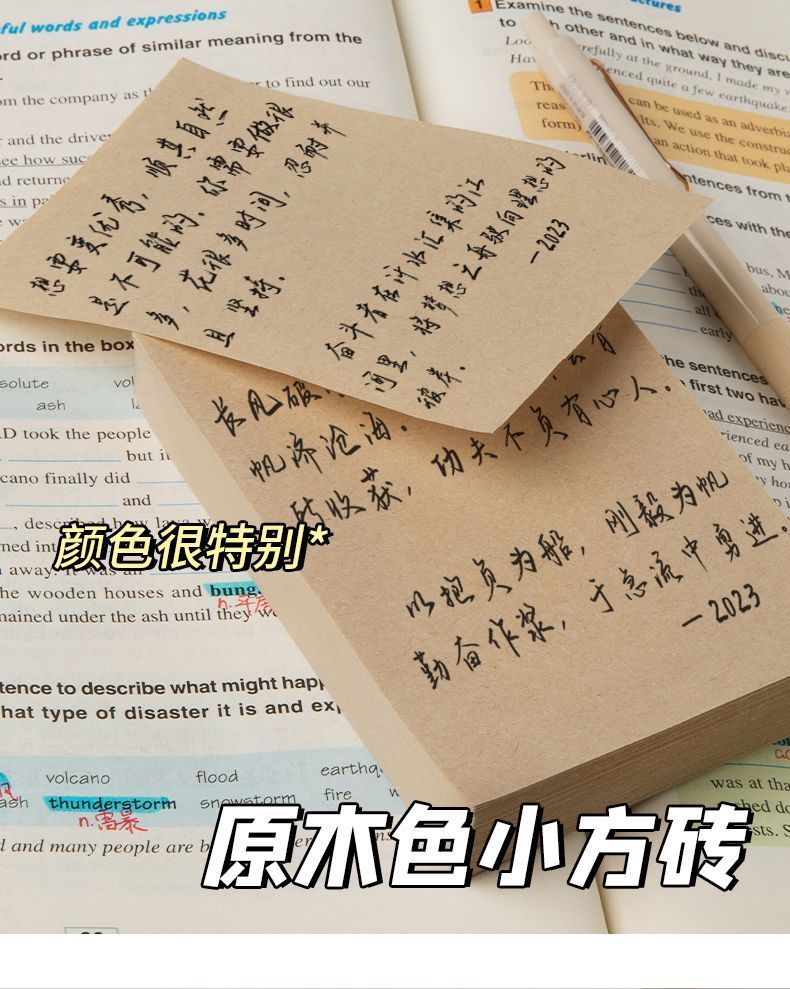 ful words and expressions
ord or phrase of similar meaning from the
om the company as th
er to find out our
r and the driver
see how suc
d returne
s in pa
ords in the box
solute
vol
ash
la
D took the people
but i
cano finally did
and
, descri
ned int
away. It was an
he wooden houses and bung
n.平房
nained under the ash until they w
tence to describe what might happ
hat type of disaster it is and exp
volcano flood earthq
ash thunderstorm snowstorm fire w
n.雷暴
d and many people are b
1 Examine the sentences below and discu
to each other and in what way they are
Look carefully at the ground, I made my w
Having experienced quite a few earthquake
The
can be used as an adverbia
reas
lts. We use the construc
form)
an action that took pla
derlin
ntences from t
ces with the
bus, M
abou
all c
early
the sentences
first two hav
bad experienc
rienced ea
of my h
was at tha
shed do
sts. S
想需要变优秀，顺其自然
是不可能的。你需要做很
多，花很多时间，忍耐并
且坚持。
奋斗者在汗水汇集的江
河里，将梦想之舟驶向理想的
彼岸。
—2023
长风破
帆济沧海。
会有
所收获，功夫不负有心人。
以抱负为船，刚毅为帆
勤奋作桨，于急流中勇进。
—2023
颜色很特别*
原木色小方砖